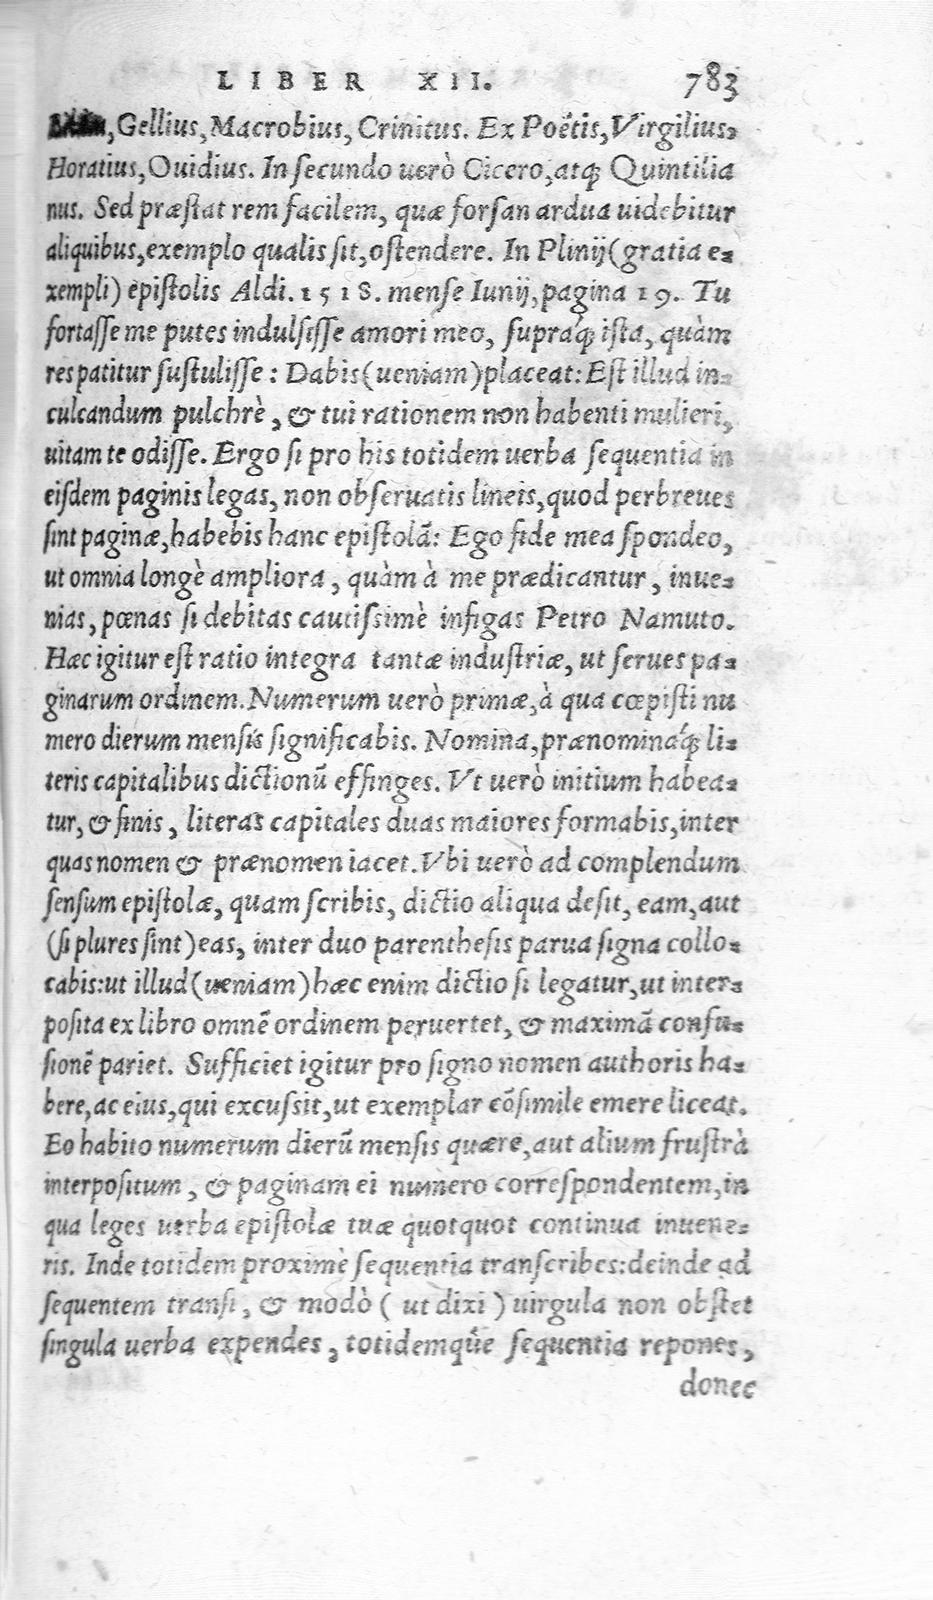 LIBER XII. 783
, Gellius, Macrobius, Crinitus. Ex Poëtis, Virgilius,
Horatius, Ouidius. In secundo uerò Cicero, atq; Quintilia
nus. Sed præstat rem facilem, quæ forsan ardua uidebitur
aliquibus, exemplo qualis sit, ostendere. In Plinij (gratia e-
xempli) epistolis Aldi. 1518. mense Iunij, pagina 19. Tu
fortasse me putes indulsisse amori meo, supraq́; ista, quàm
res patitur sustulisse: Dabis (ueniam) placeat: Est illud in-
culcandum pulchrè, & tui rationem non habenti mulieri,
uitam te odisse. Ergo si pro his totidem uerba sequentia in
eisdem paginis legas, non obseruatis lineis, quod perbreues
sint paginæ, habebis hanc epistolã: Ego fide mea spondeo,
ut omnia longè ampliora, quàm à me prædicantur, inue-
nias, pœnas si debitas cautissimè infigas Petro Namuto.
Hæc igitur est ratio integra tantæ industriæ, ut serues pa-
ginarum ordinem. Numerum uerò primæ, à qua cœpisti nu
mero dierum mensis significabis. Nomina, prænominaq́; li-
teris capitalibus dictionũ effinges. Vt uerò initium habea-
tur, & finis, literas capitales duas maiores formabis, inter
quas nomen & prænomen iacet. Vbi uerò ad complendum
sensum epistolæ, quam scribis, dictio aliqua desit, eam, aut
(si plures sint) eas, inter duo parenthesis parua signa collo-
cabis: ut illud (ueniam) hæc enim dictio si legatur, ut inter-
posita ex libro omnẽ ordinem peruertet, & maximã confu-
sionẽ pariet. Sufficiet igitur pro signo nomen authoris ha-
bere, ac eius, qui excussit, ut exemplar cõsimile emere liceat.
Eo habito numerum dierũ mensis quære, aut alium frustrà
interpositum, & paginam ei numero correspondentem, in
qua leges uerba epistolæ tuæ quotquot continua inuene-
ris. Inde totidem proximè sequentia transcribes: deinde ad
sequentem transi, & modò ( ut dixi ) uirgula non obstet
singula uerba expendes, totidemq̃ue sequentia repones,
donec